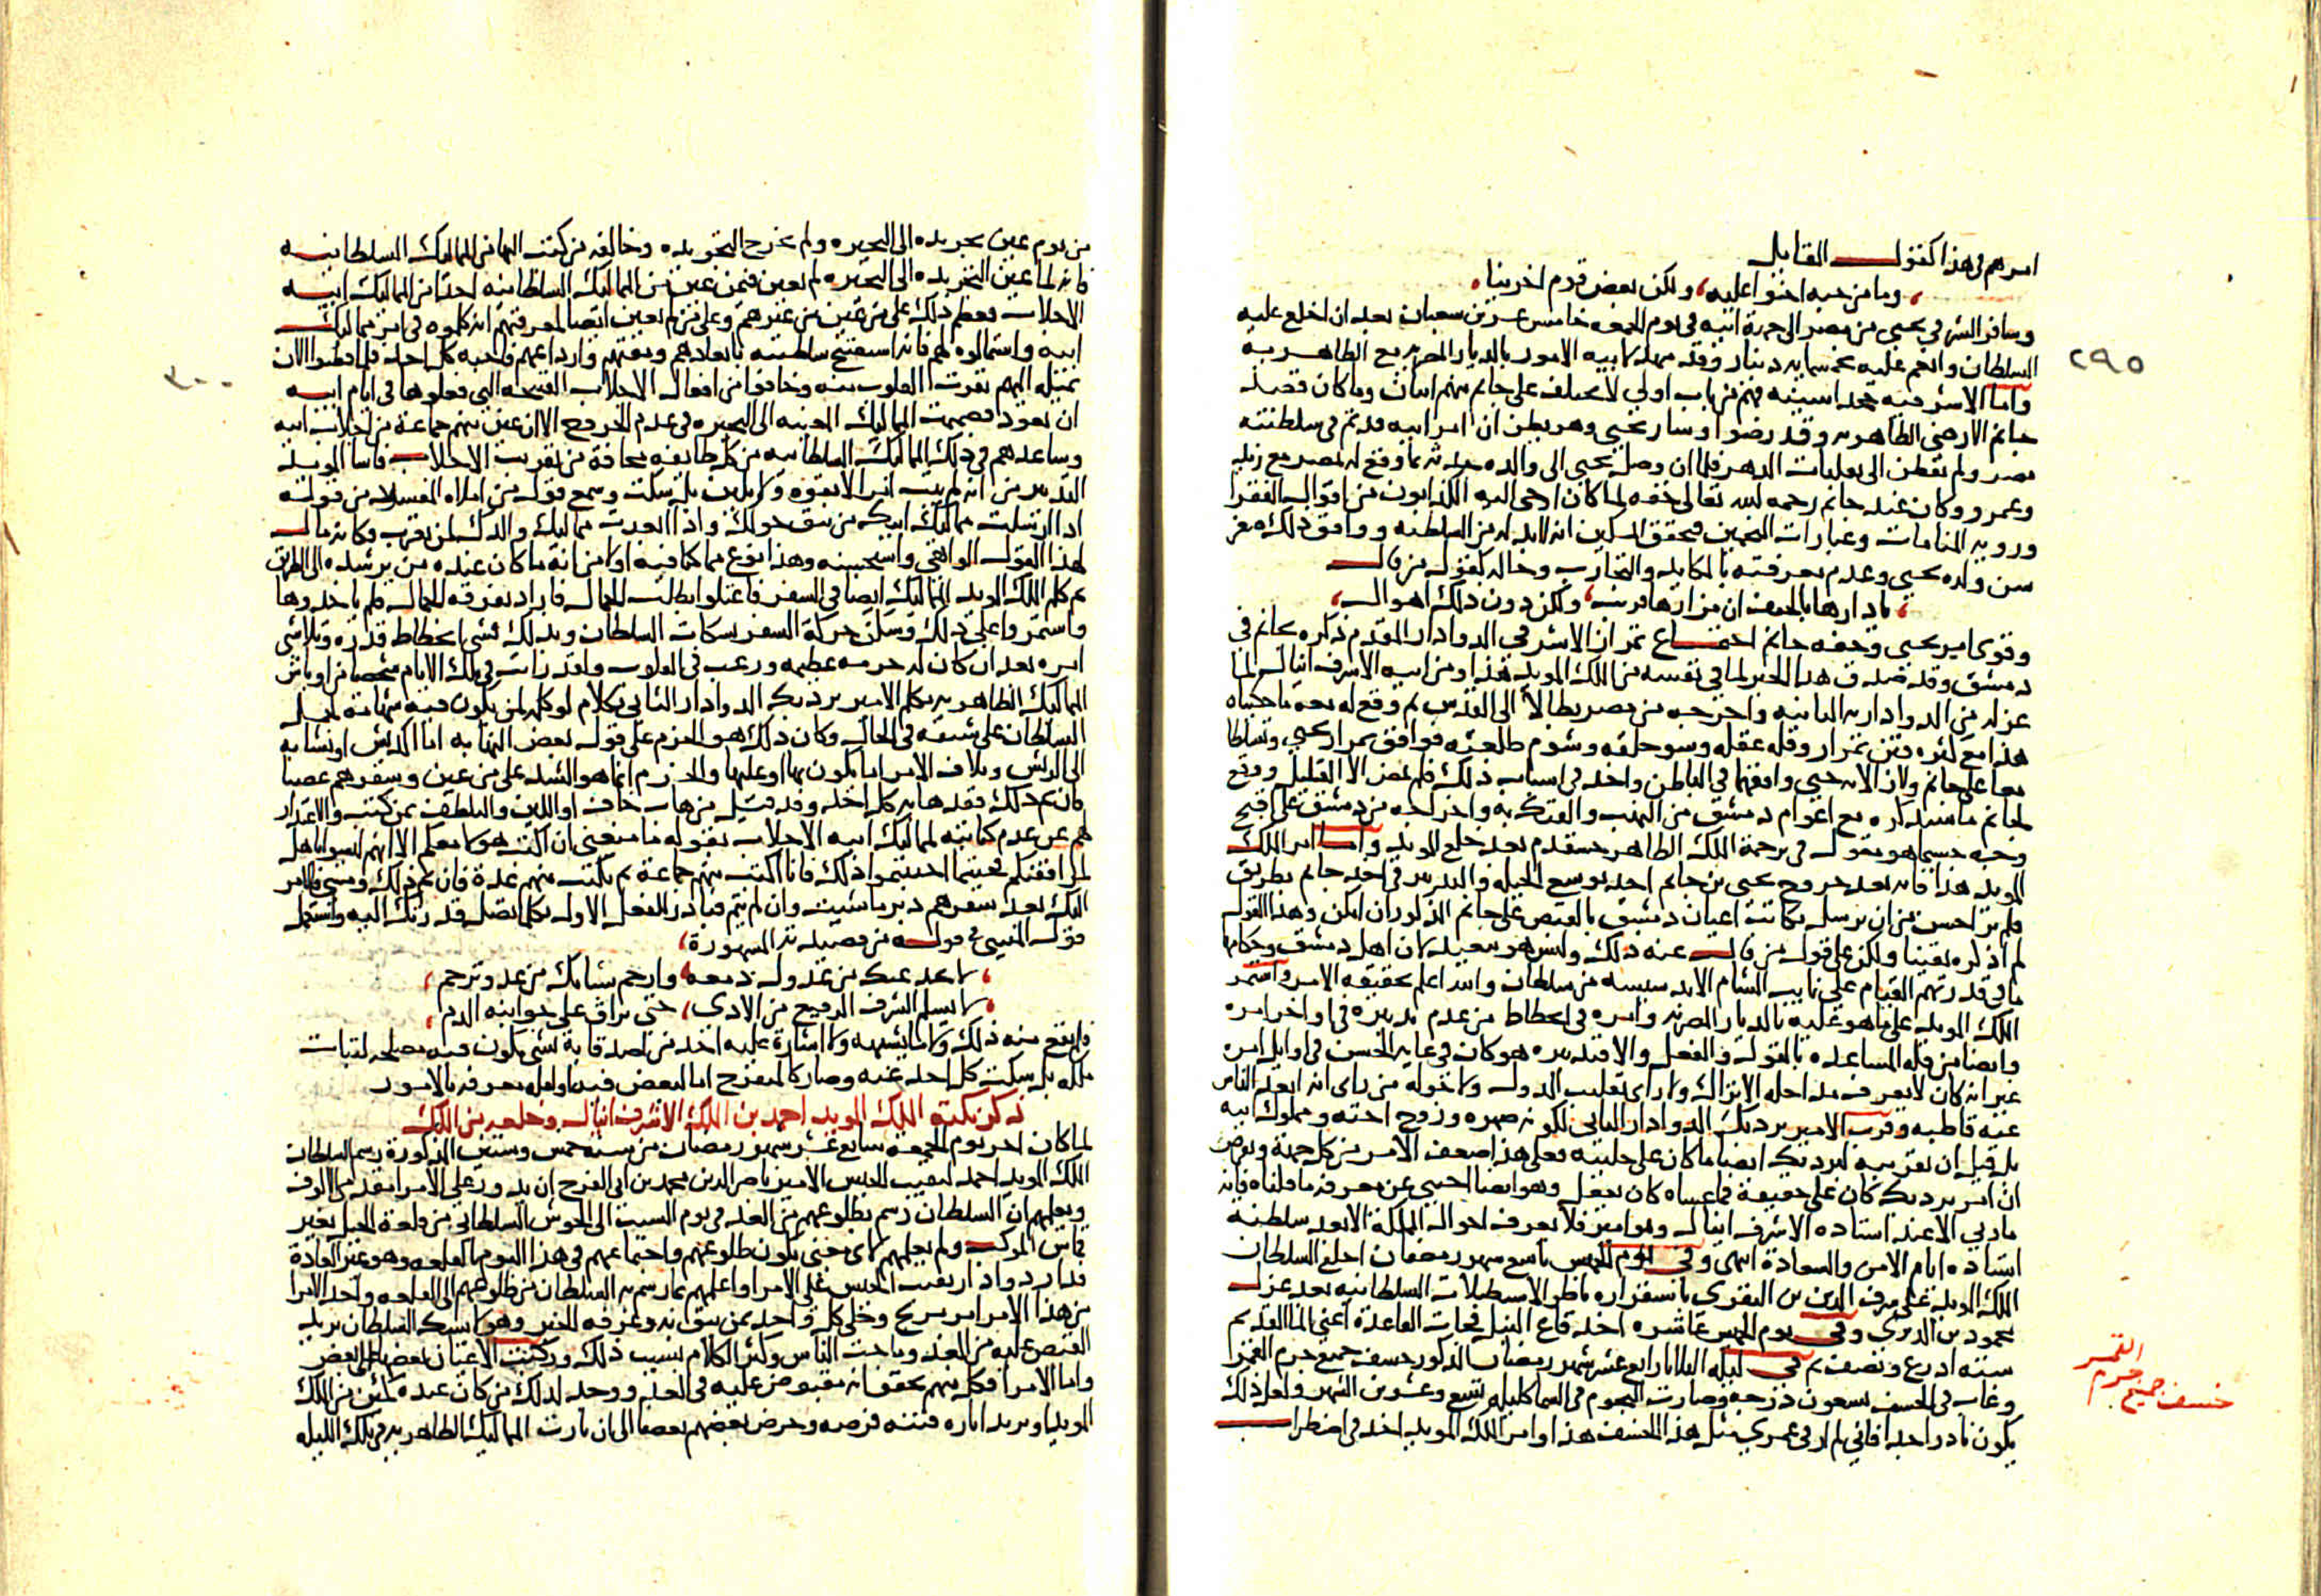 امرهم في هذا كقول القايل
وما من حبه احنوا عليه ولكن بغض قوم اخرينا
وسافر الشرفي يحيى من مصر الى جهة ابيه في يوم الجمعه خامس عشرين شعبان بعد ان اخلع عليه
السلطان وانعم عليه بخمسمايه دينار وقد مهد لابيه الامور بالديار المصريه مع الظاهريه
٢٩٥
واما الاشرفيه فهم من باب اولى لا يختلف على جانم منهم اثنان وما كان قصد
جانم الا رضى الظاهريه وقد رضوا وسار يحيى وهو يظن ان امر ابيه قد تم في سلطنته
مصر ولم يفطن الى تقلبات الدهر فلما ان وصل يحيى الى والده حدثه بما وقع له بمصر مع زيد
وعمرو وكان عند جانم رحمه الله تعالى خفه لما كان اوحى اليه الكذابون من اقوال الفقرا
وروية المنامات وعبارات المنجمين فتحقق المسكين انه لابد له من السلطنه ووافق ذلك صغر
سن ولده يحيى وعدم معرفته بالمكايد والتجارب وحاله كقول من قال
يا دارها بالخيف ان مزارها قريب ولكن دون ذلك اهوال
وقوى امر يحيى وخفة جانم اجتماع تمراز الاشرفي الدوادار المقدم ذكره بجانم في
دمشق وقد صدق هذا الخبر لما في نفسه من الملك المويد هذا ومن ابيه الاشرف اينال لما
عزله من الدوادارية الثانيه واخرجه من مصر بطالا الى القدس ثم وقع له بعده ما حكيناه
هذا مع كثرة فتن تمراز وقلة عقله وسو خلقه وشوم طلعته فوافق تمراز يحيى وتسلطا
معا على جانم ولازالا به حتى وافقهما في الباطن واخذ في اسباب ذلك فلم يمض الا القليل ووقع
لجانم ما سنذكره مع اعوام دمشق من النهب والفتك به واخراجه من دمشق على اقبح
وجه حسبما هو مقول في ترجمة الملك الظاهر خشقدم بعد خلع المويد واما امر الملك
المويد هذا فانه بعد خروج يحيى بن جانم اخذ يوسع الحيله والتدبير في اخذ جانم بطريق
فلم ير احسن من ان يرسل يكاتب اعيان دمشق بالقبض على جانم المذكور ان امكن وهذا القول
لم اذكره يقينا ولكن على قول من قال عنه ذلك وليس هو ببعيد لان اهل دمشق وحكامها
ما في قدرتهم القيام على نايب الشام الا بدسيسه من سلطان والله اعلم بحقيقة الامر واستمر
الملك المويد على ما هو عليه بالديار المصرية وامره في انحطاط من عدم تدبيره في اواخر امره
وايضا من قلة المساعده بالقول والفعل والا فتدبيره هو كان في غاية الحسن في اوايل امره
غير انه كان لا يعرف مداخلة الاتراك ولا راى تقلب الدول ولا حوله من راى انه ابعد الناس
عنه قاطبه وقرب الامير بردبك الدوادار الثاني لكونه صهره وزوج اخته ومملوك ابيه
بل قيل ان تقريبه لبردبك ايضا ما كان على جليته فعلى هذا ضعف الامر من كل جهة وبفرض
ان امر بردبك كان على حقيقة فما عساه كان يفعل وهو ايضا اجنبي عن معرفة ما قلناه فانه
ما ربي الا عند استاذه الاشرف اينال وهو امير فلا يعرف احوال المملكة الا بعد سلطنة
استاذه ايام الامن والسعادة انتهى وفي يوم الخميس تاسع شهر رمضان اخلع السلطان
الملك المويد على شرف الدين بن البقري باستقراره ناظر الاسطبلات السلطانيه بعد عزل
محمود بن الديري وفي يوم الخميس عاشره اخذ قاع النيل فجات القاعدة اعني الما القديم
ستة اذرع ونصف ثم في ليلة الثلاثا رابع عشر شهر رمضان المذكور خسف جميع جرم القمر
وغاب في الخسف سبعون درجه وصارت النجوم في السما كليلة تسع وعشرين الشهر ولعل ذلك
يكون نادر احدا فاني لم ار في عمري مثل هذا الخسف هذا وامر الملك المويد اخذ في اضطراب
خسف جميع جرم
القمر
من يوم عين تجريده الى البحيره ولم تخرج التجريده وخالفه من كتب اليها من المماليك السلطانيه
فانه لما عين التجريده الى البحيره لم يعين فيمن عين من المماليك السلطانيه احدا من المماليك ابيه
الاجلاب فعظم ذلك على من عين من غيرهم وعلى من لم يعين ايضا لمعرفتهم انه كلموه في امر مماليك
ابيه واستمالوه لهم فانه استفتح سلطنته بابعادهم ومقتهم وارداعهم فاحبه كل احد فلما فطنوا الان
٣٠٠
بميله اليهم نفرت القلوب منه وخافوا من افعال الاجلاب القبيحة التي فعلوها في ايام ابيه
ان تعود فصممت المماليك المعينه الى البحيره في عدم الخروج الا ان عين منهم جماعة من اجلاب ابيه
وساعدهم في ذلك المماليك السلطانيه من كل طايفه مخافة من تقريب الاجلاب فاسا المويد
التدبير من انه لم يبت امرا لا بقوه ولا بلين بل سكت وسمع قول من املاه المفسود من قوله
اذا ارسلت مماليك ابيك من يبق حولك واذا ابعدت مماليك والدك لمن تقرب وكانه مال
لهذا القول الواهي واستحسنه وهذا نوع مما كنا فيه اولا من انه ما كان عنده من يرشده الى الطريق
ثم كلم الملك المويد المماليك ايضا في السفر فاعتلوا بطلب الجمال فاراد تفرقة الجمال فلم ياخذوها
واستمروا على ذلك وسكن حركة السفر بسكات السلطان وبذلك فشى انحطاط قدره وتلاشى
امره بعد ان كان له حرمه عظيمه ورعب في القلوب ولقد رايت في تلك الايام شخصا من اوباش
المماليك الظاهريه يكلم الامير بردبك الدوادار الثاني بكلام لو كلمه لمن يكون فيه شهامة لحمل
السلطان على شنقه في الحال وكان ذلك هو الحزم على قول بعض النهابه اما اكديش او نشابه
الى الريش وتلاف الامر اما يكون بها او عليها والحزم انما هو الشد على من عين وسفرهم غصبا
فان تم ذلك فقد هابه كل احد وقد قيل من هاب خاف او اللين والتلطف بمن كتب والاعتذار
لهم عن عدم كتابته لمماليك ابيه الاجلاب بقوله ما منعني ان اكتب هولا معكم الا انهم ليسوا باهل
لمرافقتكم فحيثما احببتموا ذلك فانا اكتب منهم جماعة ثم يكتب منهم عدة فان تم ذلك ومشى فالامر
اليك بعد سفرهم دبر ما شيت وان لم يتم فبادر للفعل الاول بكل ما تصل قدرتك اليه واستعمل
قول المتنبي في قوله من قصيدته المشهورة
لا يخدعنك من عدو دمعه وارحم شبابك من عدو ترحم
لا يسلم الشرف الرفيع من الاذى حتى يراق على جوانبه الدم
فلم يقع منه ذلك ولا ما يشبهه ولا اشارة عليه احد من اصدقايه لشي يكون فيه مصلحه لثبات
ملكه بل سكت كل احد عنه وصار كالمتفرج اما لبغض فيه او لقلة معرفه بالامور
ذكر نكبة الملك المويد احمد بن الملك الاشرف اينال وخلعه من الملك
لما كان اخر يوم الجمعه سابع عشر شهر رمضان من سنه خمس وستين المذكورة رسم السلطان
الملك المويد احمد لنقيب الجيش الامير ناصر الدين محمد بن ابي الفرج ان يدور على الامرا مقدمي الالوف
ويعلمهم ان السلطان رسم بطلوعهم من الغد في يوم السبت الى الحوش السلطاني من قلعة الجبل بغير
قماش الموكب ولم يعلمهم لاى معنى يكون طلوعهم واجتماعهم في هذا اليوم بالقلعه وهو غير العادة
فدار دوادار نقيب الجيش على الامرا واعلمهم بما رسم به السلطان من طلوعهم الى القلعه واخذ الامرا
من هذا الامر امر مريج وخلى كل واحد بمن يثق به وعرفه الخبر وهو لا يشك ان السلطان يريد
القبض عليه من الغد وماجت الناس وكثر الكلام بسبب ذلك وركبت الاعيان بعضها على بعض
واما الامرا فكل منهم تحقق انه مقبوض عليه في الغد ووجد لذلك من كان عنده كمين من الملك
المويد او يريد اثارة فتنه فرصه وحرض بعضهم بعضا الى ان ثارت المماليك الظاهريه في تلك الليله